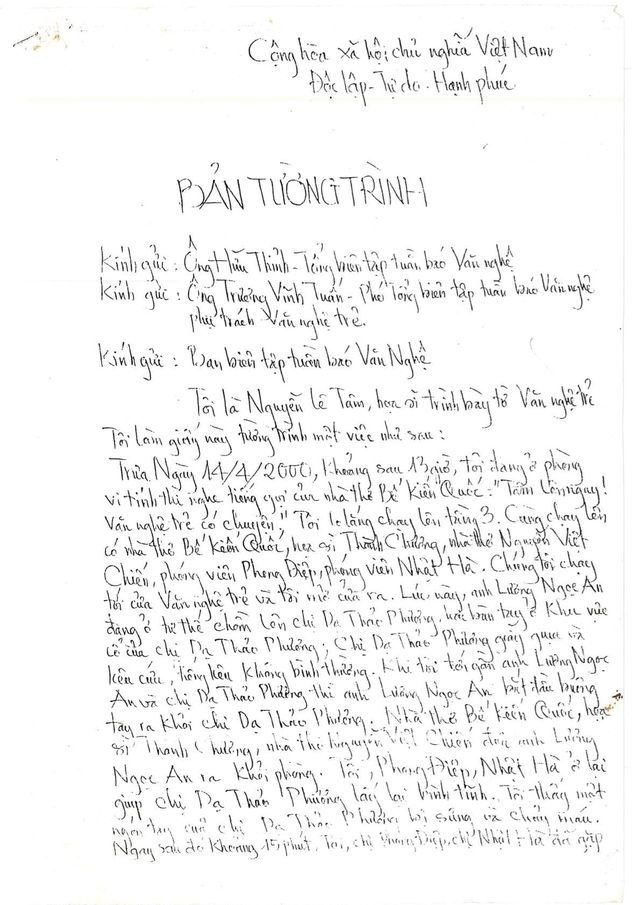 Cộng hòa xã hội chủ nghĩa Việt Nam
Độc lập - Tự do - Hạnh phúc
BẢN TƯỜNG TRÌNH
Kính gửi : Ông Hữu Thỉnh - Tổng biên tập tuần báo Văn nghệ
Kính gửi : Ông Trương Vĩnh Tuấn - Phó Tổng biên tập tuần báo Văn nghệ
phụ trách Văn nghệ trẻ.
Kính gửi : Ban biên tập tuần báo Văn Nghệ
Tôi là Nguyễn Lê Tâm, họa sĩ trình bày tờ Văn nghệ trẻ
Tôi làm giấy này tường trình một việc như sau :
Trưa Ngày 14/4/2000, Khoảng sau 13 giờ, tôi đang ở phòng
vi tính thì nghe tiếng gọi của nhà thơ Bế Kiến Quốc : "Tâm lên ngay!
Văn nghệ trẻ có chuyện," Tôi lo lắng chạy lên tầng 3. Cùng chạy lên
có nhà thơ Bế Kiến Quốc, họa sĩ Thành Chương, nhà thơ Nguyễn Việt
Chiến, phóng viên Phong Điệp, phóng viên Nhật Hà. Chúng tôi chạy
tới cửa Văn nghệ trẻ và tôi mở cửa ra. Lúc này, anh Lương Ngọc An
đang ở tư thế chồm lên chị Dạ Thảo Phương, hai bàn tay ở Khu vực
cổ của chị Dạ Thảo Phương ; Chị Dạ Thảo Phương giãy giụa và
kêu cứu, tiếng kêu không bình thường. Khi tôi tới gần anh Lương Ngọc
An và chị Dạ Thảo Phương thì anh Lương Ngọc An bắt đầu buông
tay ra khỏi chị Dạ Thảo Phương. Nhà thơ Bế Kiến Quốc, họa
sĩ Thành Chương, nhà thơ Nguyễn Việt Chiến đưa anh Lương
Ngọc An ra khỏi phòng. Tôi, Phong Điệp, Nhật Hà ở lại
giúp chị Dạ Thảo Phương lấy lại bình tĩnh. Tôi thấy một
ngón tay của chị Dạ Thảo Phương bị sưng và chảy máu.
Ngay sau đó khoảng 15 phút, Tôi, chị Phong Điệp, chị Nhật Hà đã gặp